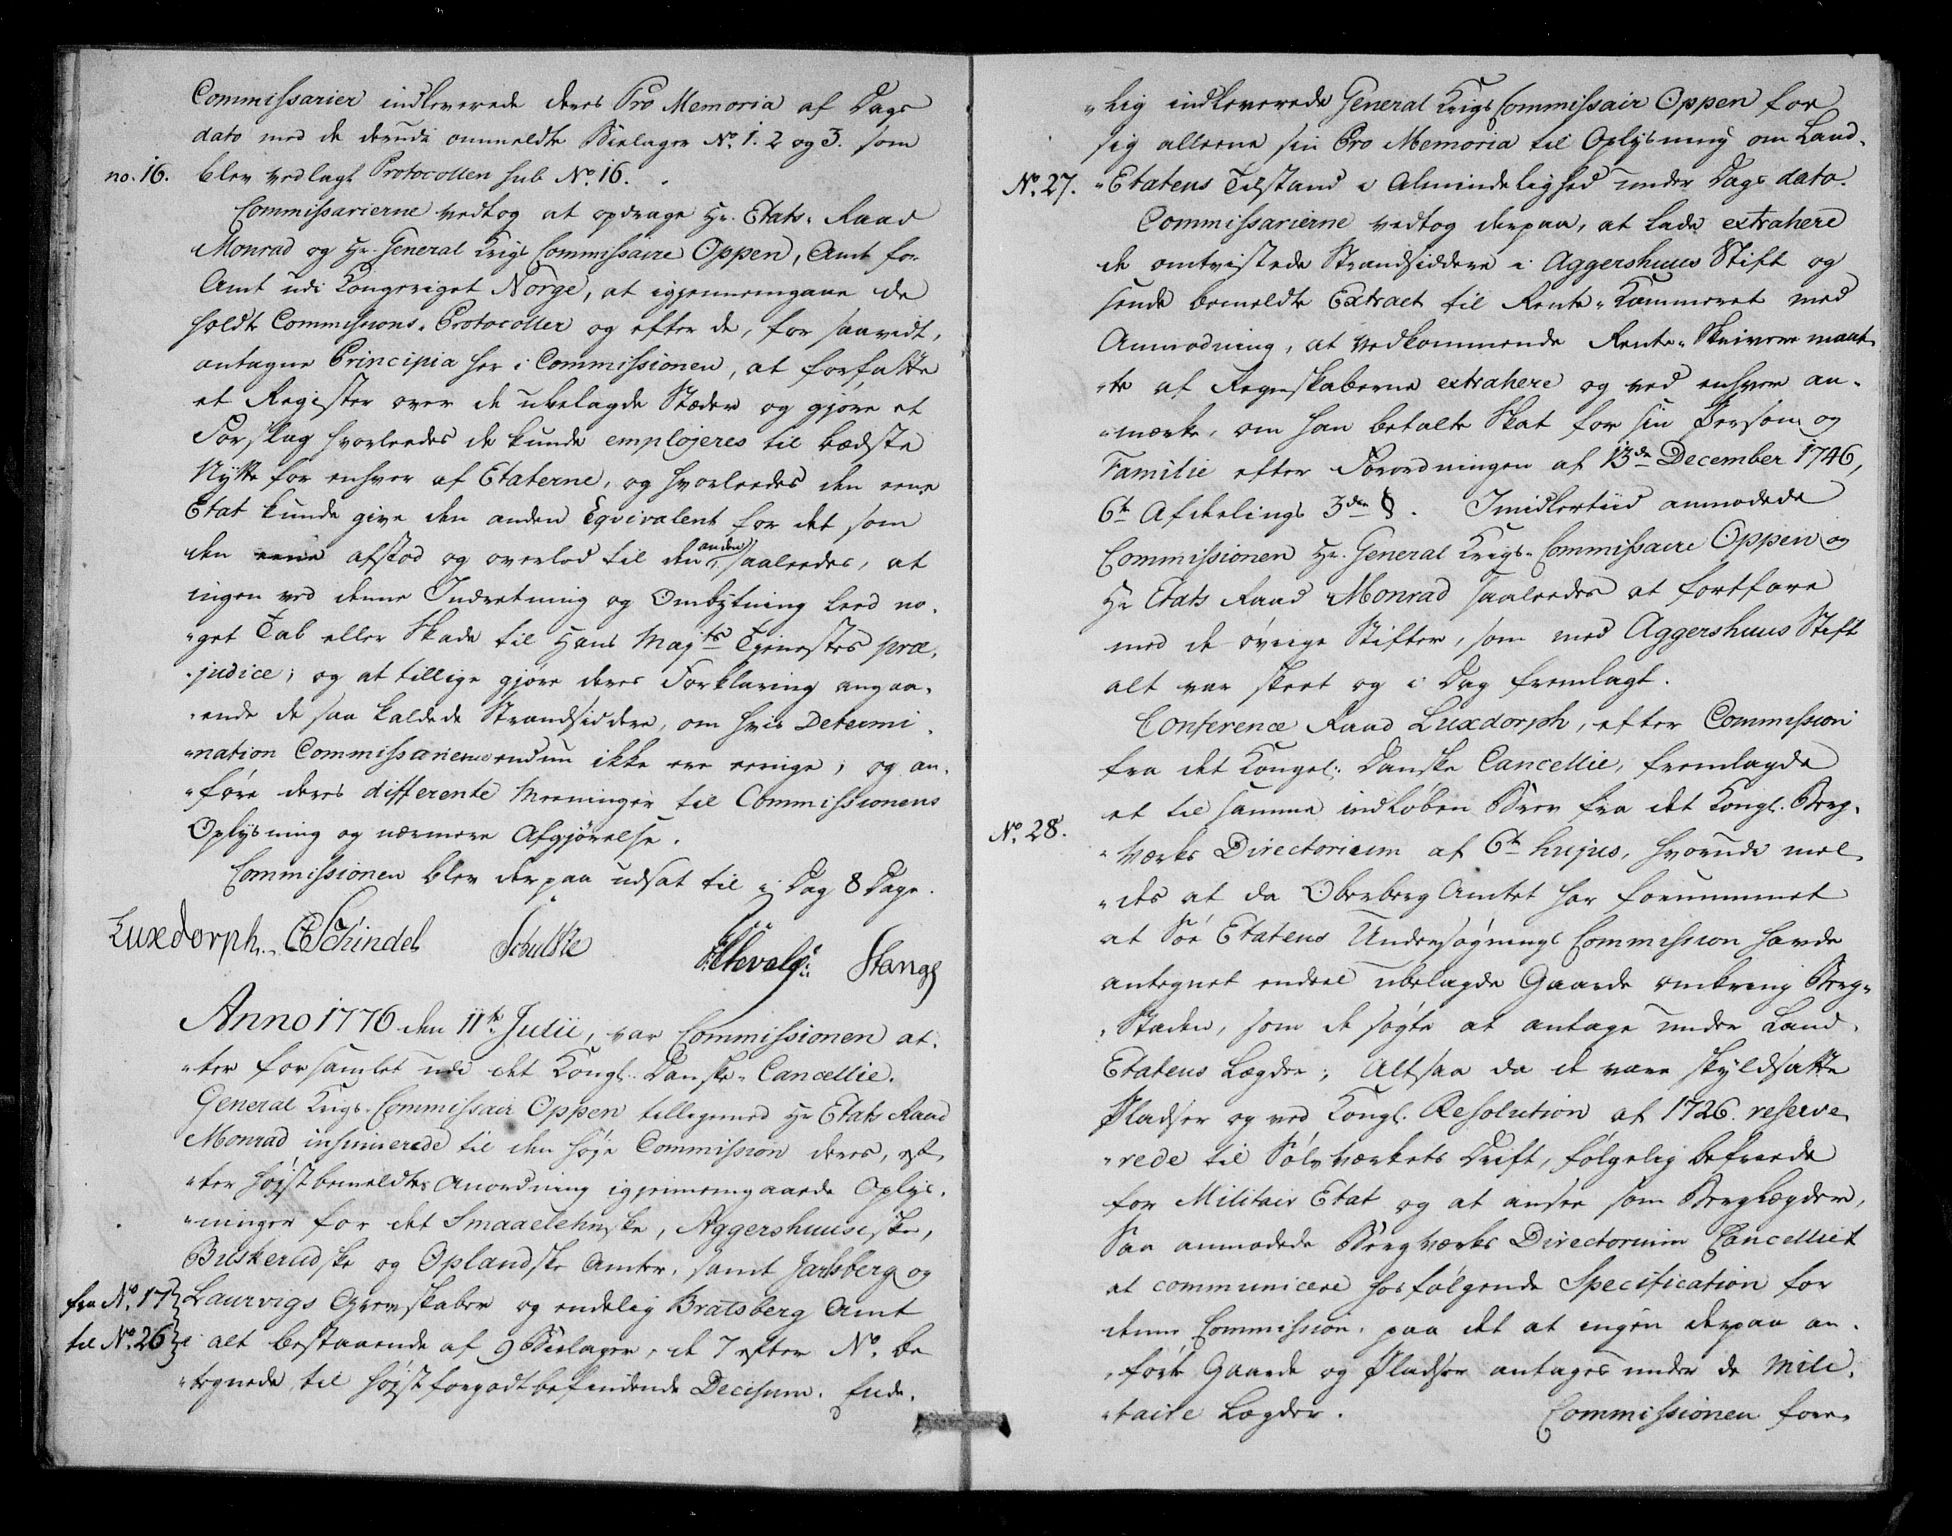 Commissarier indleverede deres Pro Memoria af Dags
dato med de derudi ommeldte Bielager No. 1. 2 og 3. som
no. 16. blev vedlagt Protocollen sub No. 16.
Commissarierne vedtog at opdrage Hr. Etats-Raad
Monrad og Hr. General Krigs Commissaire Oppen, Amt for
Amt udi Kongeriget Norge, at igjennemgaae de
holdte Commissions-Protocoller og efter de, for saavidt,
antagne Principia her i Commissionen, at forfatte
et Register over de ubelagde Stæder og gjøre et
Forslag hvorleedes de kunde employeres til bedste
Nytte for enhver af Etaterne, og hvorleedes den eene
Etat kunde give den anden Eqvivalent for det som
den eene afstod og overlod til den anden, saaleedes, at
ingen ved denne Indretning og Ombytning leed no-
"get Tab eller Skade til Hans Majts Tjenestes præ-
"judice; og at tillige gjøre deres Forklaring angaa-
"ende de saa kaldede Strandsiddere, om hvis Determi-
"nation Commissarierne endnu ikke ere eenige; og an-
"føre deres differente Meeninger til Commissionens
Oplysning og nærmere Afgjørelse.
Commissionen blev derpaa udsat til i Dag 8 Dage.
Luxdorph. Schindel Schultze Stange
Anno 1776 den 11te Julii, var Commissionen at-
"ter forsamlet udi det Kongl. Danske-Cancellie.
General Krigs-Commissair Oppen tilligemed Hr Etats Raad
Monrad insinuerede til den høje Commission deres, ef-
"ter højstbemeldtes Anordning igjennemgaaede Oplys-
"ninger for det Smaaelehnske, Aggershuusiske,
Buskerudske og Oplandske Amter, samt Jarlsberg og
fra No. 17 Laurvigs Grevskaber og endelig Bratsberg Amt
til No. 26 i alt bestaaende af 9 Bielager, de 7 efter No. be
"tegnede til højstforgodtbefindende Decisum. Ende-
"lig indleverede General Krigs Commissair Oppen for
sig alleene sin Pro Memoria til Oplysning om Land-
No. 27. "Etatens Tilstand i Almindelighed under Dags dato.
Commissarierne vedtog derpaa, at lade extrahere
de omtvistede Strandsiddere i Aggershuus Stift og
sende bemeldte Extract til Rente-Kammeret med
Anmodning, at Vedkommende Rente-Skrivere maat-
"te af Regnskaberne extrahere og ved enhver an-
"mærke, om han betalte Skat for sin Person og
Familie efter Forordningen af 13de December 1746,
6te Afdelings 3die §. Imidlertiid anmodede
Commissionen Hr. General Krigs-Commissaire Oppen og
Hr Etats Raad Monrad saaleedes at fortfare
med de øvrige Stifter, som med Aggershuus Stift
alt var skeet og i Dag fremlagt.
Conference Raad Luxdorph, efter Commission
fra det Kongel: Danske Cancellie, fremlagde
et til samme indløben Brev fra det Kongl. Berg-
No. 28. "Værks Directorium af 6te hujus, hvorudi mel-
"des at da Oberberg Amtet har fornummet
at Søe Etatens Undersøgnings Commission havde
antegnet endeel ubelagde Gaarde omkring Berg-
"Staden, som de søgte at antage under Land-
Etatens Lægder; Altsaa da de vare skyldsatte
Pladser og ved Kongl. Resolution af 1726. reserve-
"rede til Sølv Værkets Drift, følgelig befriede
for Militair Etat og at ansee som Berglægder,
Saa anmodede BergVærks Directorium Cancelliet
at communicere hosfølgende Specification for
denne Commission, paa det at ingen derpaa an-
"førte Gaarde og Pladser antages under de mili-
"taire Lægder. Commissionen fore-